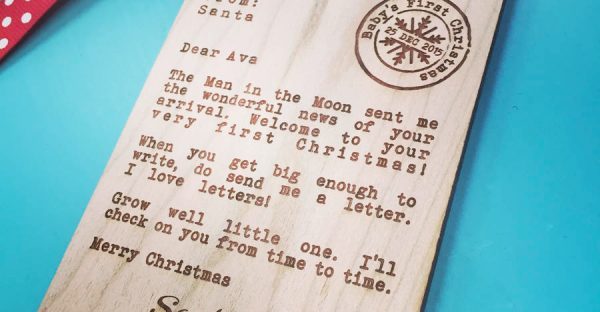 From:
Santa
Baby's First Christmas
25 DEC 2015
Dear Ava
The Man in the Moon sent me
the wonderful news of your
arrival. Welcome to your
very first Christmas!
When you get big enough to
write, do send me a letter.
I love letters!
Grow well little one. I'll
check on you from time to time.
Merry Christmas